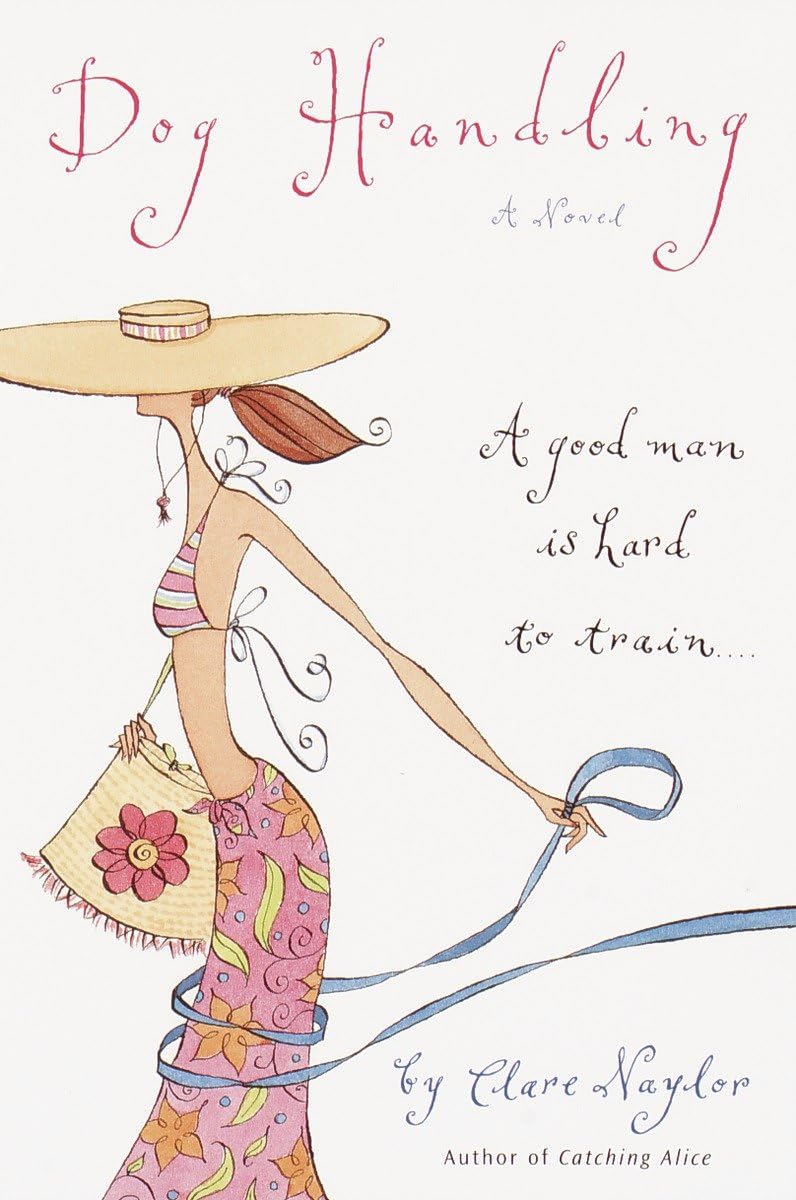 Dog Handling
A Novel
A good man
is hard
to train....
by Clare Naylor
Author of Catching Alice